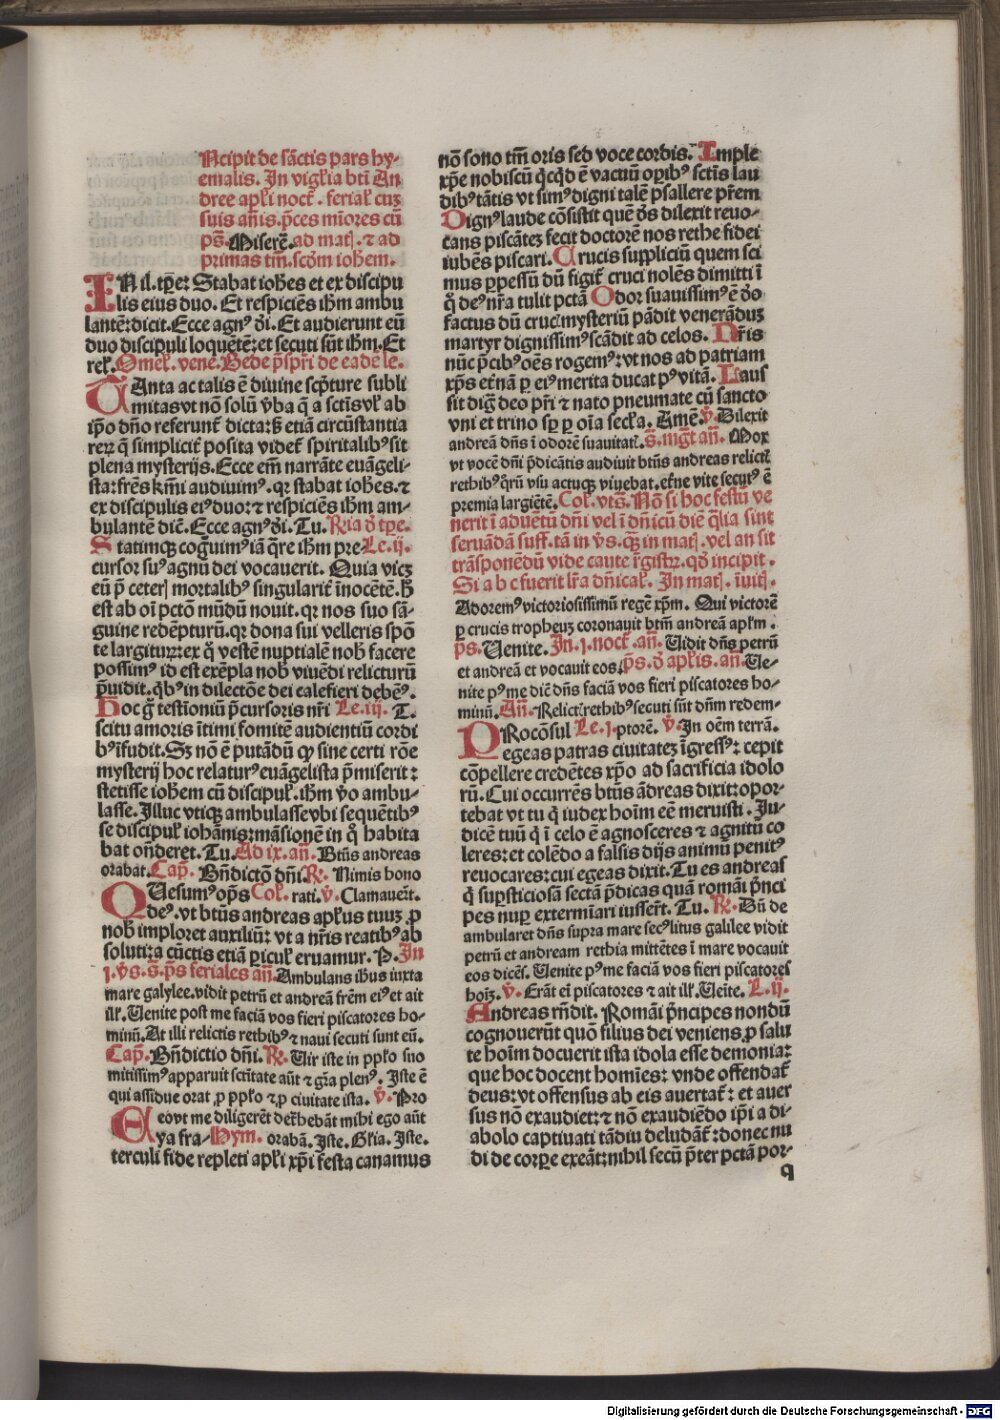 Ncipit de sāctis pars hy-
emalis. In vigl'ia bt̄i An
dree apl'i noct̄. ferial' cuꝫ
suis añis. p̄ces mīores cū
ps̄. Miserē. ad matꝭ. ⁊ ad
primas tm̄. scd̄m iohem.
IN il. tp̄e: Stabat ioh̄es et ex discipu
lis eius duo. Et respiciēs ih̄m ambu
lantē: dicit. Ecce agnꝰ d̄i. Et audierunt eū
duo discipuli loquētē: et secuti sūt ih̄m. Et
rel'. Omel'. vene. Bede p̄sp̄ri de eadē le.
TAnta ac talis ē divine scp̄ture subli
mitas vt nō solū v̄ba q̄ a sctīs vl' ab
ip̄o dn̄o referunt̄ dicta: sꝫ etiā circūstantia
reꝝ q̄ simplicit̄ posita videt̄ spiritalibꝰ sit
plena mysterijs. Ecce em̄ narrāte euāgeli-
sta: fr̄es km̄i audiuimꝰ. qꝛ stabat ioh̄es. ⁊
ex discipulis eiꝰ duo: ⁊ respiciēs ih̄m am-
bulantē diē. Ecce agnꝰ d̄i. Tu. R̄ia d̄ tp̄e.
Statimqꝫ coḡuimꝰ iā q̄re ih̄m pre- Le. ij.
cursor suꝰ agnū dei vocauerit. Quia vicꝫ
eū p̄ ceterꝭ mortalibꝰ singularit̄ inocētē. h̄
est ab oī pctō mūdū nouit. qꝛ nos suo sā-
guine redēpturū. qꝛ dona sui velleris spō
te largituꝝ: ex q̄ vestē nuptialē nob̄ facere
possimꝰ id est exēpla nob̄ viuēdi relicturū
p̄uidit. q̄bꝰ in dilectōe dei calefieri debēꝰ.
Hoc g̊ testīoniū p̄cursoris nr̄i Le. iij. T.
scitu amoris ītimi fomitē audientiū cordi
bꝰ īfudit. Sꝫ nō ē putādū qꝙ sine certi rōe
mysterij hoc relaturꝰ euāgelista p̄miserit:
stetisse ioh̄em cū discipul'. ih̄m v̄o ambu-
lasse. Illuc vtiqꝫ ambulasse vbi sequētibꝰ
se discipul' iohānis: māsionē in q̄ habita
bat on̄deret. Tu. Ad ix. añ. Btūs andreas
orabat. Cap̄. Bn̄dictō dn̄i. R̄. Nimis hono
QUesumꝰ op̄s Col. rati. v̄. Clamauer̄t.
deꝰ. vt btūs andreas apl'us tuuꝫ ꝓ
nob̄ imploret auxiliū: vt a nr̄is reatibꝰ ab
soluti: a cūctis etiā picul' eruamur. P. In
j. vs̄. s̄. ps̄ feriales añ. Ambulans ihus iuxta
mare galylee. vidit petrū et andreā fr̄em eiꝰ et ait
ill'. Uenite post me faciā vos fieri piscatores ho-
minū. At illi relictis rethibꝰ ⁊ naui secuti sunt eū.
Cap̄. Bn̄dictio dn̄i. R̄. Uir iste in ppl'o suo
mitissimꝰ apparuit sctītate aūt ⁊ grā plenꝰ. Iste ē
qui assidue orat ꝓ ppl'o ⁊ ꝓ ciuitate ista. v̄. Pro
eo vt me diligerēt detrhebāt mihi ego aūt
EYa fra- Hym. orabā. Iste. Gl'ia. Iste.
terculi fide repleti apl'i xp̄i festa canamus
nō sono tm̄ oris sed voce cordis. Imple
xp̄e nobiscū qcqd ē vacuū opibꝰ sctīs lau
dibꝰ tātis vt simꝰ digni talē psallere pr̄em
Dignꝰ laude cōsistit quē d̄s dilexit reuo-
cans piscāteꝫ fecit doctorē nos rethe fidei
iubēs piscari. Crucis supliciū quem sci
mus ppessū dū figit̄ cruci nolēs dimitti ī
q̄ deꝰ nr̄a tulit pctā Odor suauissimꝰ ē d̄o
factus dū cruc̄ mysteriū pādit venerāduꝫ
martyr dignissimꝰ scādit ad celos. Dr̄is
nūc p̄cibꝰ oēs rogemꝰ: vt nos ad patriam
xp̄s et̄nā p eiꝰ merita ducat pꝰ vitā. Laus
sit dig̊ deo pr̄i ⁊ nato pneumate cū sancto
vni et trino sp̄ p oīa secl'a. Amē. v̄. Dilexit
andreā dn̄s ī odorē suauitatꝭ. s̄. mg̊t añ. Mox
vt vocē dn̄i p̄dicātis audiuit btūs andreas relictꝭ
rethibꝰ q̄rū vsu actuqꝫ viuebat. et̄ne vite secutꝰ ē
premia largiētē. Col. vts̄. No si hoc festū ve
nerit ī aduētū dn̄i vel ī dn̄icū diē q̄lia sint
seruādā suff. tā in vs̄. qꝫ in matꝭ. vel an sit
trāsponēdū vide caute r̄gistꝝ. qd̄ incipit.
Si a b c fuerit lr̄a dn̄ical'. In matꝭ. īuitꝭ.
Adoremꝰ victoriosissimū regē xp̄m. Qui victorē
p crucis tropheuꝫ coronauit btm̄ andreā apl'm.
ps̄. Uenite. In. j. noct̄. añ. Uidit dn̄s petrū
et andreā et vocauit eos. ps̄. d̄ apl'is. añ. Ue-
nite pꝰ me diē dn̄s faciā vos fieri piscatores ho-
minū. Añ. Relictꝭ rethibꝰ secuti sūt dn̄m redem-
PRocōsul Le. j. ptorē. v̄. In oēm terrā.
egeas patras ciuitateꝫ īgressꝰ: cepit
cōpellere credētes xp̄o ad sacrificia idolo
rū. Cui occurrēs btūs ādreas dixit: opor-
tebat vt tu q̄ iudex hoīm eē meruisti. Iu-
dicē tuū q̄ ī celo ē agnosceres ⁊ agnitū co
leres: et colēdo a falsis dijs animū penitꝰ
reuocares: cui egeas dixit. Tu es andreas
q̄ sup̄sticiosā sectā p̄dicas quā romāi p̄nci
pes nup extermīari iusser̄t. Tu. R̄. Dū de
ambularet dn̄s supra mare secꝰ litus galilee vidit
petrū et andream rethia mittētes ī mare vocauit
eos dicēs. Uenite pꝰ me faciā vos fieri piscatores
hoīꝫ. v̄. Erāt eī piscatores ⁊ ait ill'. Ueīte. L. ij.
Andreas rn̄dit. Romāi p̄ncipes nondū
cognouerūt quō filius dei veniens ꝓ salu
te hoīm docuerit ista idola esse demonia:
que hoc docent homīes: vnde offendat̄
deus: vt offensus ab eis auertat̄: et auer
sus nō exaudiet: ⁊ nō exaudiēdo ip̄i a di-
abolo captiuati tādiu deludāt̄: donec nu
di de corpe exeāt: nihil secū p̄ter pctā por-
q
Digitalisierung gefördert durch die Deutsche Forschungsgemeinschaft - DFG